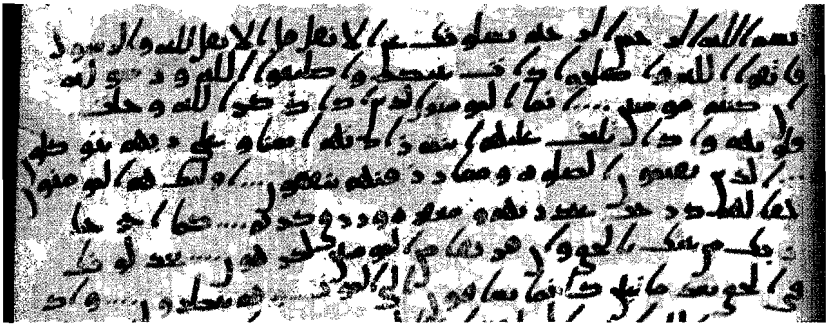 بسم الله الرحمن الرحيم يسلونك عن الانفل قل الانفل لله والرسول
فاتقوا الله واصلحوا ذات بينكم واطيعوا الله ورسوله
ان كنتم مومنين انما المومنون الذين اذا ذكر الله وجلت
قلوبهم واذا تليت عليهم ايته زادتهم ايمنا وعلى ربهم يتوكلو
ن الذين يقيمون الصلوه ومما رزقنهم ينفقون اوليك هم المومنو
ن حقا لهم درجت عند ربهم ومغفره ورزق كريم كما اخرجك
ربك من بيتك بالحق وان فريقا من المومنين لكرهون يجدلونك
في الحق بعد ما تبين كانما يساقون الى الموت وهم ينظرون واذ